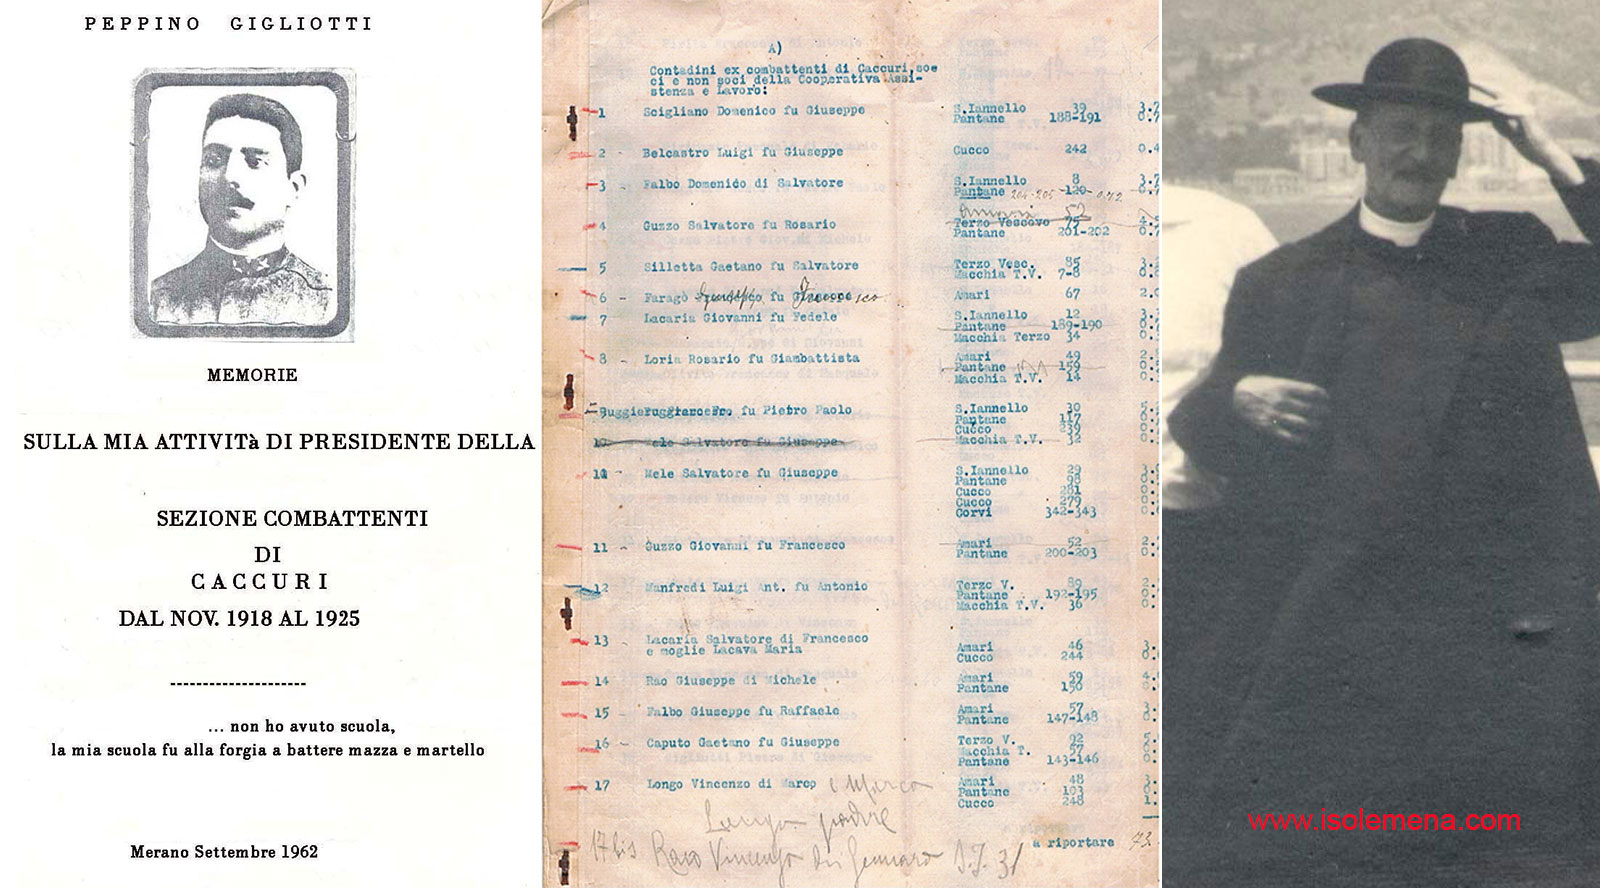 PEPPINO GIGLIOTTI
MEMORIE
SULLA MIA ATTIVITà DI PRESIDENTE DELLA
SEZIONE COMBATTENTI
DI
CACCURI
DAL NOV. 1918 AL 1925
--------------------
... non ho avuto scuola,
la mia scuola fu alla forgia a battere mazza e martello
Merano Settembre 1962
A)
Contadini ex combattenti di Caccuri, soc
ci e non soci della Cooperativa Assi-
stenza e Lavoro:
1 Scigliano Domenico fu Giuseppe S.Iannello 39 3.
Pantane 188-191 0.
2 - Belcastro Luigi fu Giuseppe Cucco 242 0.4
3 - Falbo Domenico di Salvatore S.Iannello 8 3.
Pantane 204-205 120 0.72
4 - Guzzo Salvatore fu Rosario Terzo Vescovo 75
Pantane 201-202 0.
5 Silletta Gaetano fu Salvatore Terzo Vesc. 85 3.
Macchia T.V. 7-8 0.
6 - Farago fu Francesco Amari 67 2.
7 - Lacaria Giovanni fu Fedele S.Iannello 12 3.
Pantane 189-190 0.
Macchia Terzo 34 0.
8 - Loria Rosario fu Giambattista Amari 49 2.
Pantane 159 0.
Macchia T.V. 14 0.
9 Ruggiero fu Pietro Paolo S.Iannello 30
Pantane 117 0.
Cucco 239 0.
10 Mele Salvatore fu Giuseppe Macchia T.V. 32 0.
10 - Mele Salvatore fu Giuseppe S.Iannello 29 3.
Pantane 98 0.
Cucco 281 0.
Cucco 279 0.
Corvi 342-343 0.
11 - Guzzo Giovanni fu Francesco Amari 52 2.
Pantane 200-203 0.
12 Manfredi Luigi Ant. fu Antonio Terzo V. 89 2.
Pantane 192-195 0.
Macchia T.V. 36 0.
13 Lacaria Salvatore di Francesco
e moglie Lacava Maria Amari 46 3.
Cucco 244 0.
14 - Rao Giuseppe di Michele Amari 59 4.
Pantane 150 0.
15 - Falbo Giuseppe fu Raffaele Amari 57 3.
Pantane 147-148 0.
16 - Caputo Gaetano fu Giuseppe Terzo V. 92
Macchia T. 57 0.
Pantane 143-146 0.
17 Longo Vincenzo di Marco e Marco Amari 48 3.
Longo padre Pantane 103 0.
Cucco 248 1.
a riportare 73.
17 bis Vincenzo di Gennaro
www.isolemena.com